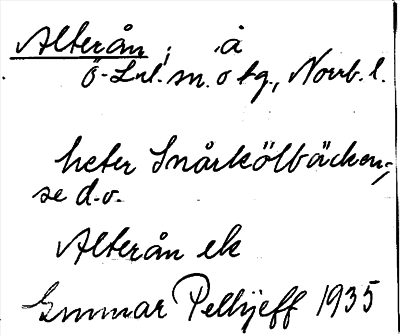 Alterån ; å
Ö-Lul. sn. o tg., Norrb. l.
heter Snårkölbäcken;
se d.o.
Alterån ek
Gunnar Pellijeff 1935